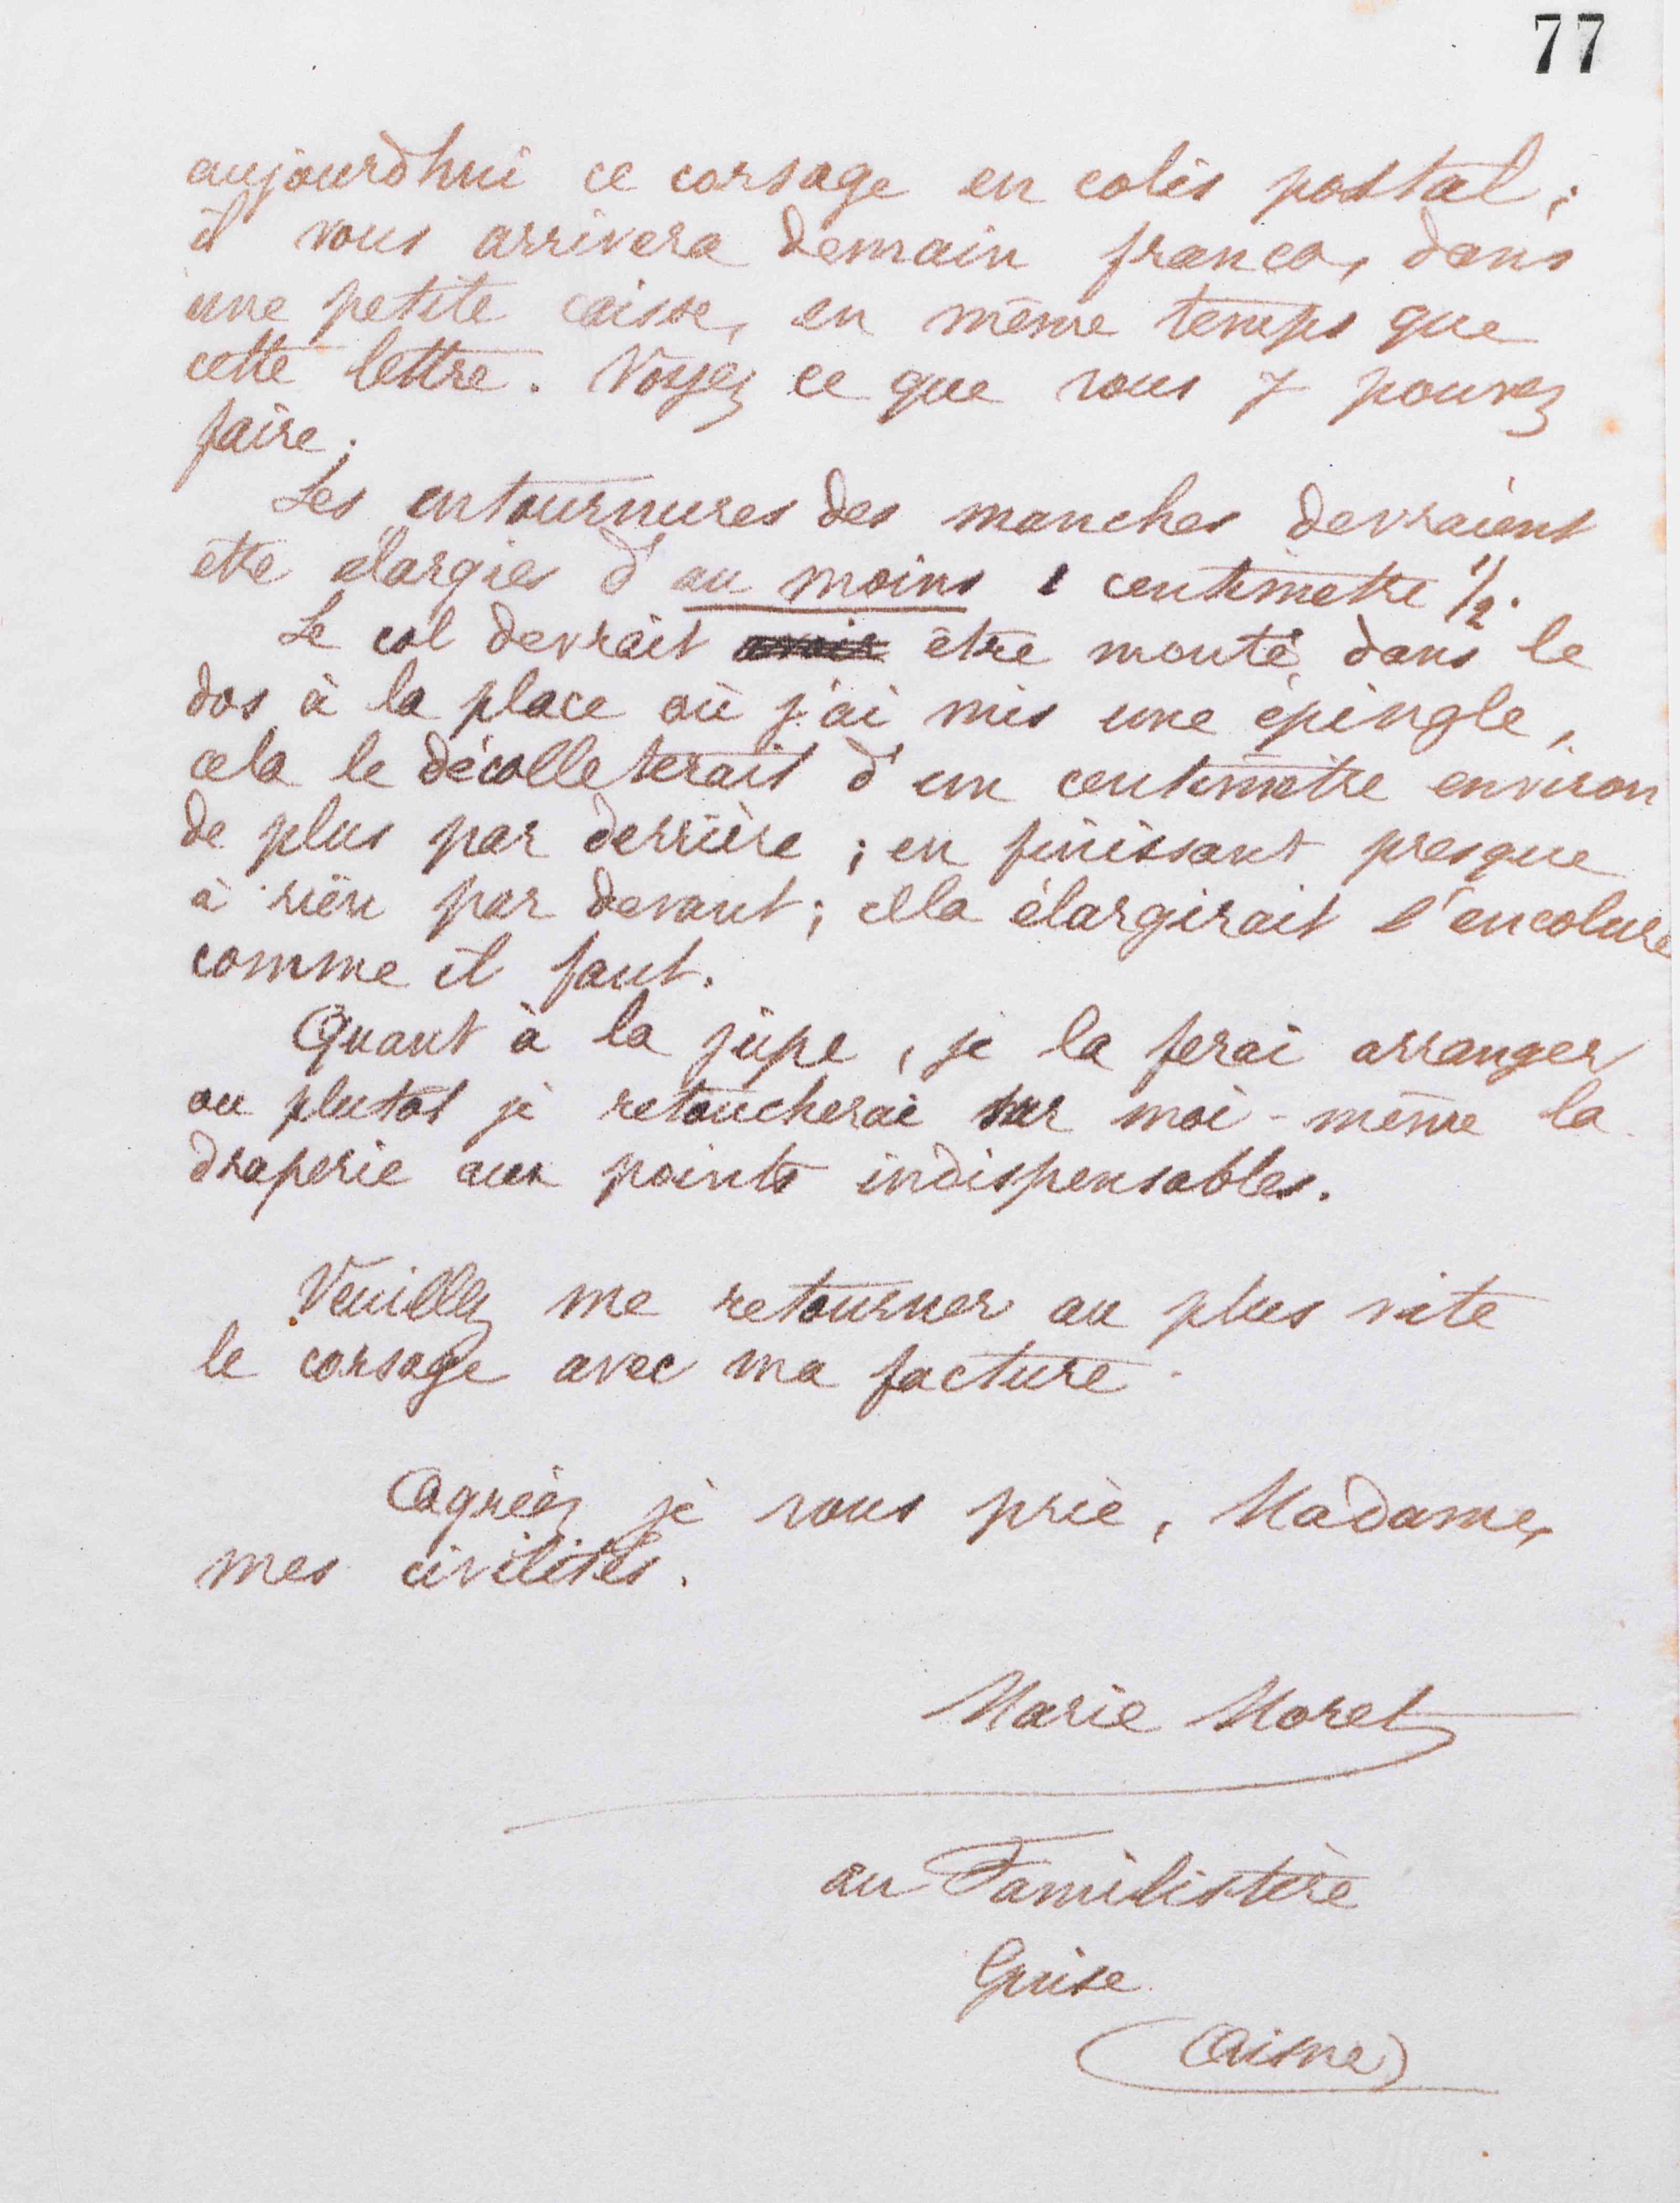 77
aujourd'hui ce corsage en colis postal ;
il vous arrivera demain franco, dans
une petite caisse, en même temps que
cette lettre. Voyez ce que vous y pouvez
faire.
Les entournures des manches devraient
être élargies d'au moins 1 centimètre 1/2.
Le col devrait être monté dans le
dos à la place où j'ai mis une épingle,
cela le décolleterait d'un centimètre environ
de plus par derrière ; en finissant presque
à rien par devant ; cela élargirait l'encolure
comme il faut.
Quant à la jupe, je la ferai arranger
ou plutôt je retoucherai sur moi-même la
draperie aux points indispensables.
Veuillez me retourner au plus vite
le corsage avec ma facture.
Agréez je vous prie, Madame,
mes civilités.
Marie Moret
au Familistère
Guise
(Aisne)